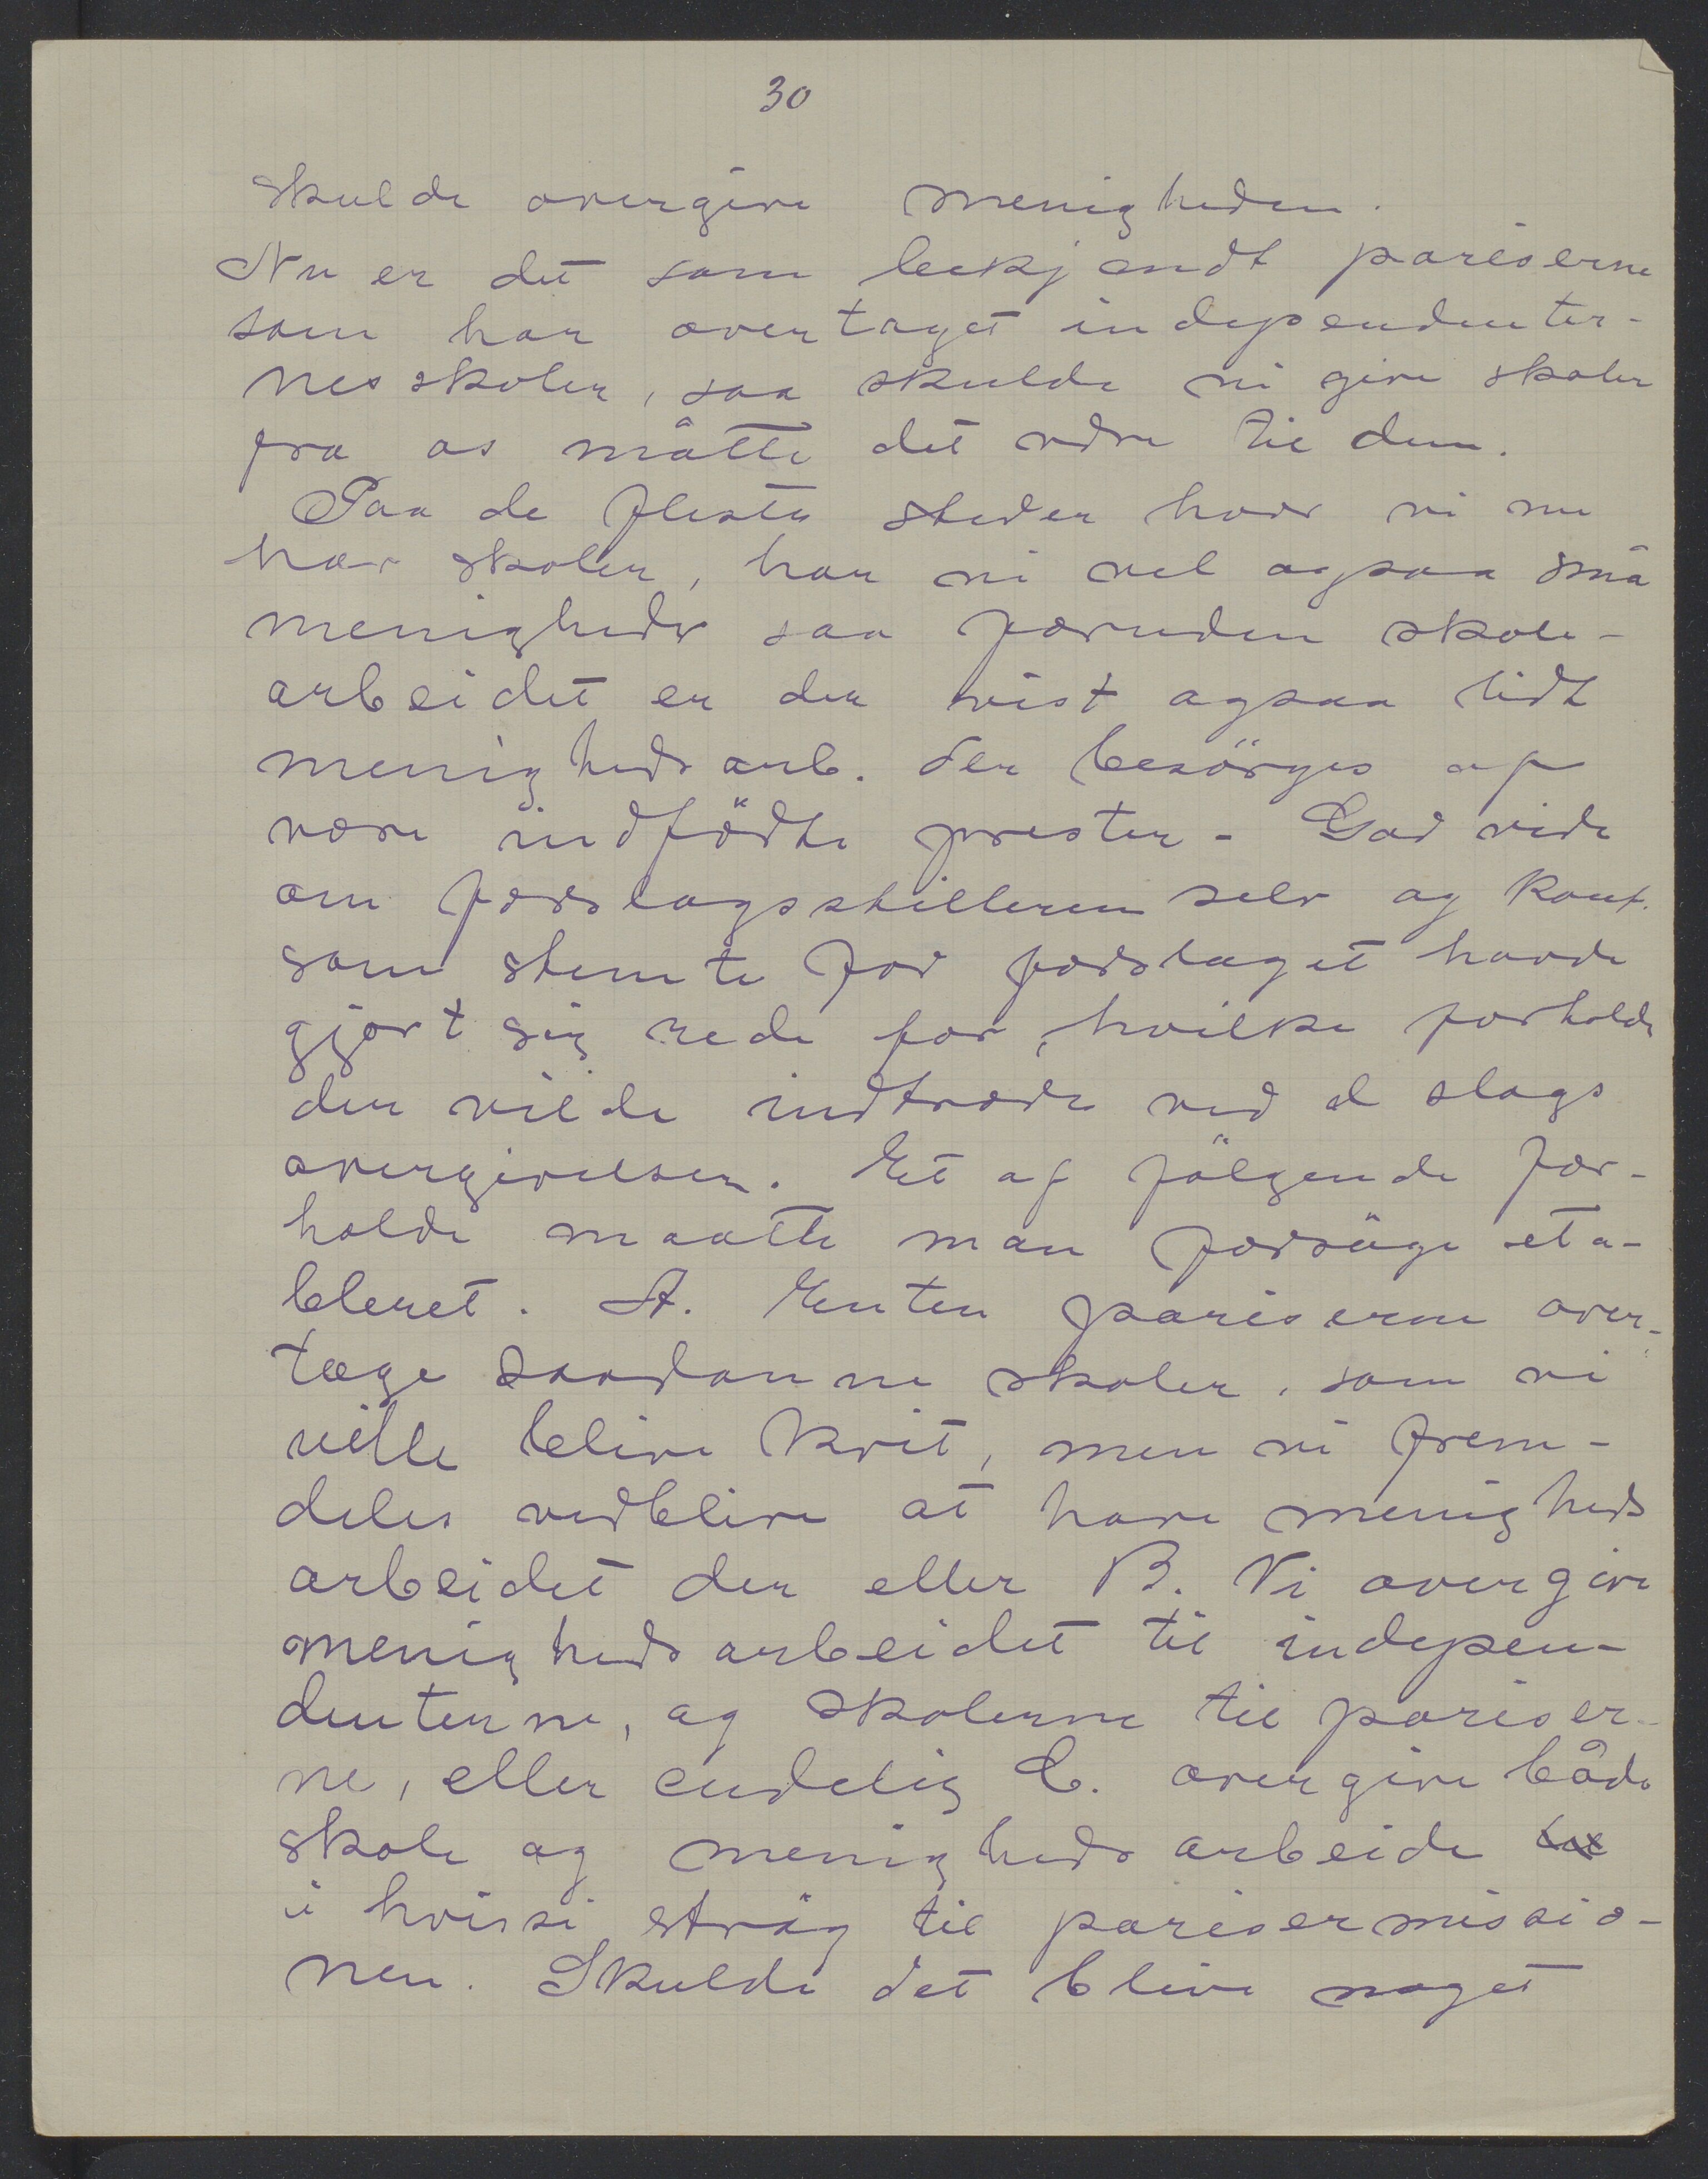 30
skulde overgive menigheden.
Nu er det som bekjendt pariserne
som har overtaget independenter-
nes skoler, saa skulde vi give skoler
fra os måtte det være til dem.
Paa de fleste steder hvor vi nu
har skoler, har vi vel ogsaa små
menigheder saa foruden skole-
arbeidet er der vist ogsaa lidt
menighedsarb. der besörges af
vore indfödte prester - Gad vide
om forslagsstilleren selv og konf.
som stemte for forslaget havde
gjort sig rede for, hvilke forholde
der vilde indtræde ved d slags
overgivelser. Et af fölgende for-
holde maatte man forsöge eta-
bleret. A. Enten pariserne over-
tage saadanne skoler, som vi
ville blive kvit, men vi frem-
deles vedblive at have menigheds
arbeidet der eller B. Vi overgive
menighedsarbeidet til indepen-
denterne, og skolerne til pariser-
ne, eller endelig C. overgive både
skole og menigheds arbeide
i hvisse strög til parisermissio-
nen. Skulde det blive noget